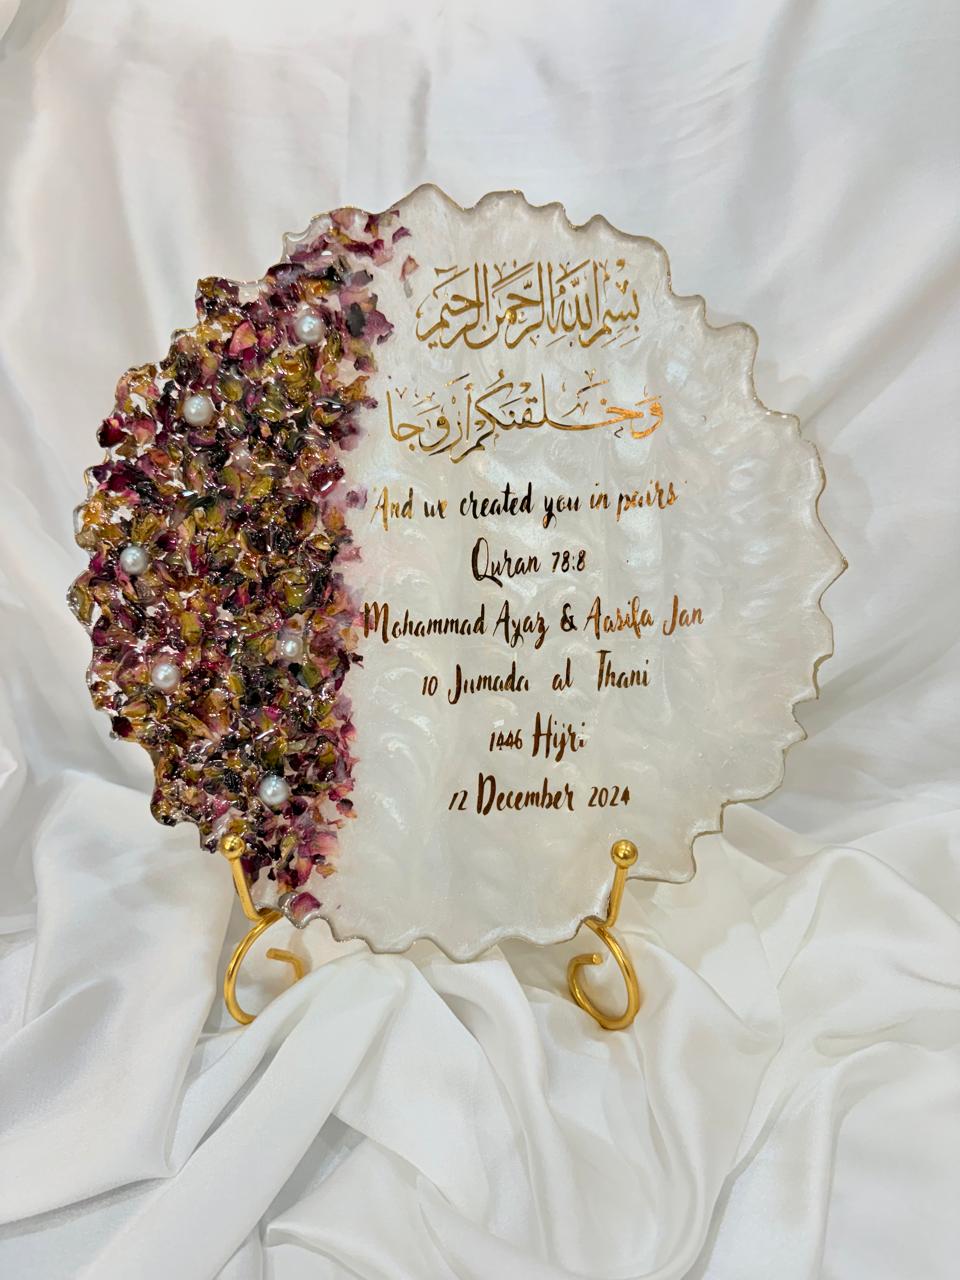 بِسْمِ اللَّهِ الرَّحْمَنِ الرَّحِيمِ
وَخَلَقْنَكُمْ أَزْوَجًا
And we created you in pairs
Quran 78:8
Mohammad Ayaz & Aasifa Jan
10 Jumada al Thani
1446 Hijri
12 December 2024